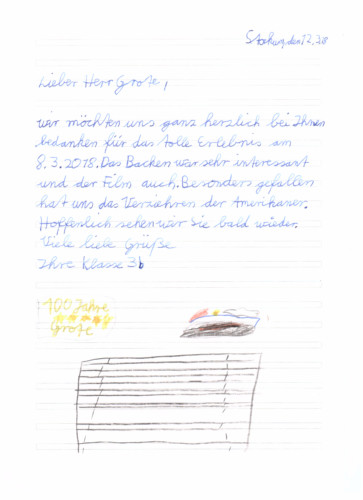 den 12.3.18
Lieber Herr Grote,
wir möchten uns ganz herzlich bei Ihnen
bedanken für das tolle Erlebnis am
8.3.2018. Das Backen war sehr interessant
und der Film auch. Besonders gefallen
hat uns das Verziehren der Amerikaner.
Hoffenlich sehen wir Sie bald wieder.
Viele liebe Grüße
Ihre Klasse 3b
100 Jahre
Grote